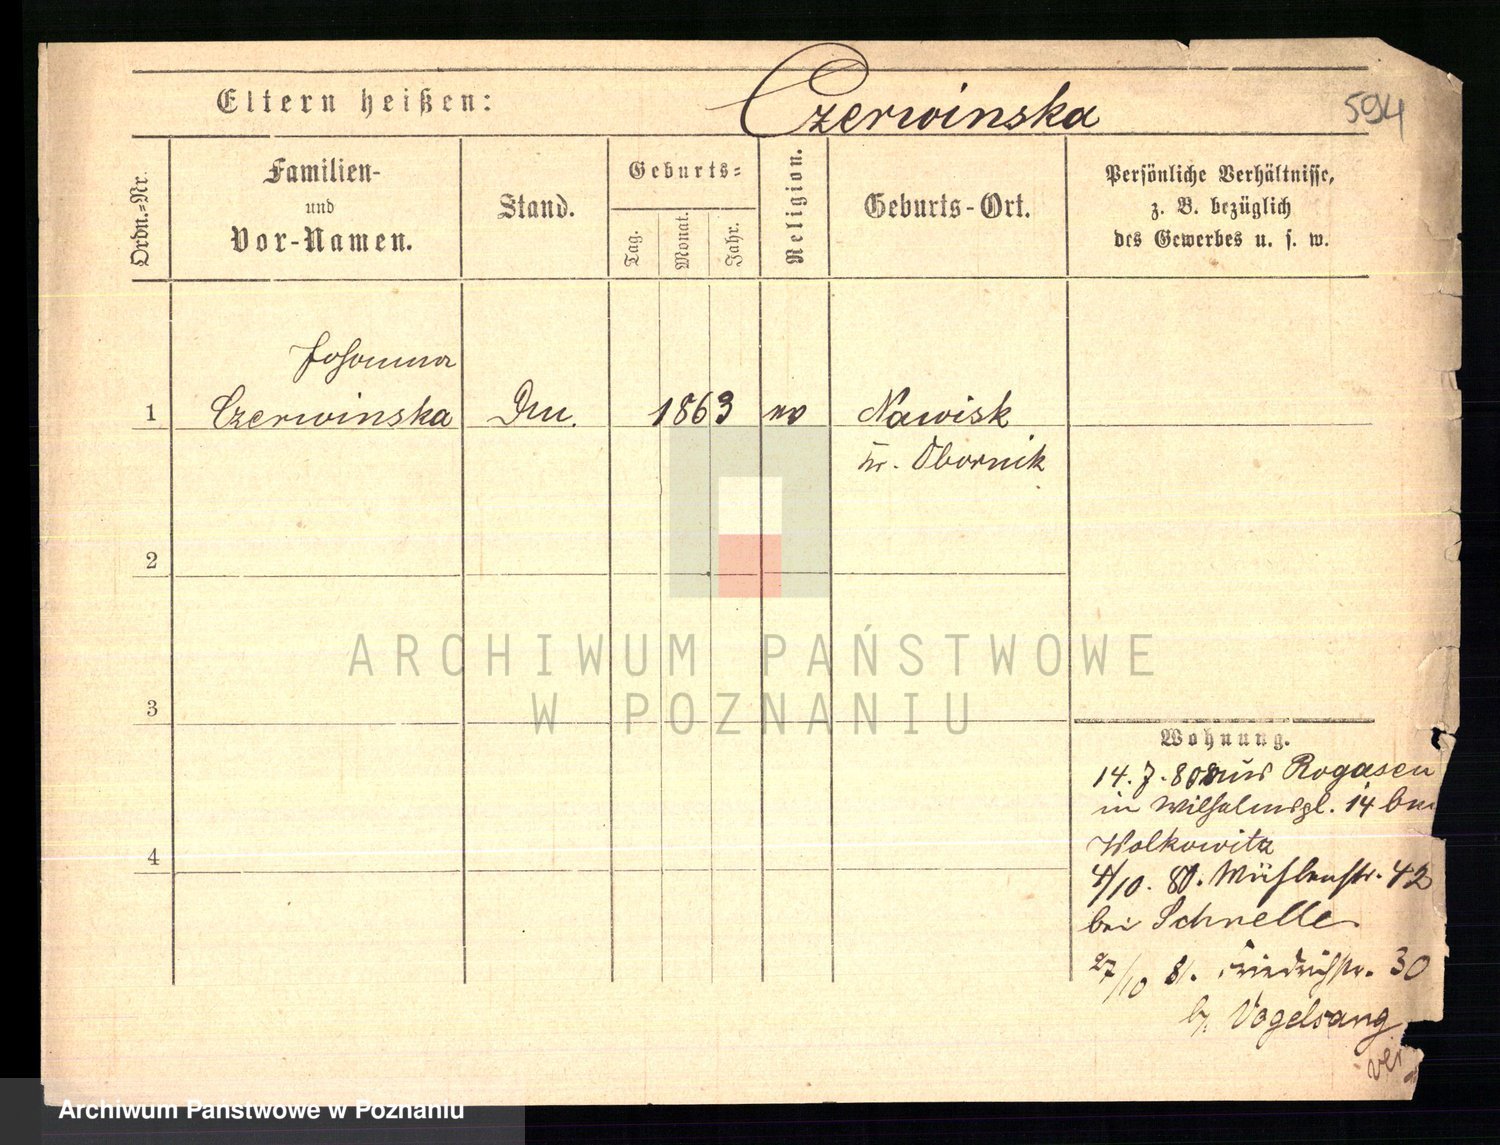 Eltern heißen:
Czerwinska
594
Ordn.=Nr.
Familien-
und
Vor-Namen.
Stand.
Geburts=
Tag.
Monat.
Jahr.
Religion.
Geburts-Ort.
Persönliche Verhältnisse,
z. B. bezüglich
des Gewerbes u. s. w.
Johanna
1
Czerwinska
1863
Nawisk
Kr. Obornik
2
3
4
ARCHIWUM PAŃSTWOWE
W POZNANIU
Wohnung.
14. 7. 80 aus Rogasen
in Wilhelmspl. 14 bei
Wolkowitz
4/10. 80. Mühlenstr. 42
bei Schnelle
27/10 81. Friedrichstr. 30
b. Vogelsang
Archiwum Państwowe w Poznaniu